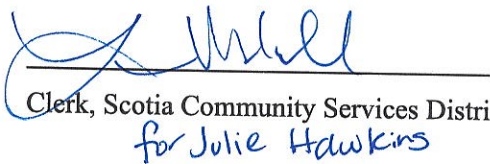 Clerk, Scotia Community Services Distri
for Julie Hawkins